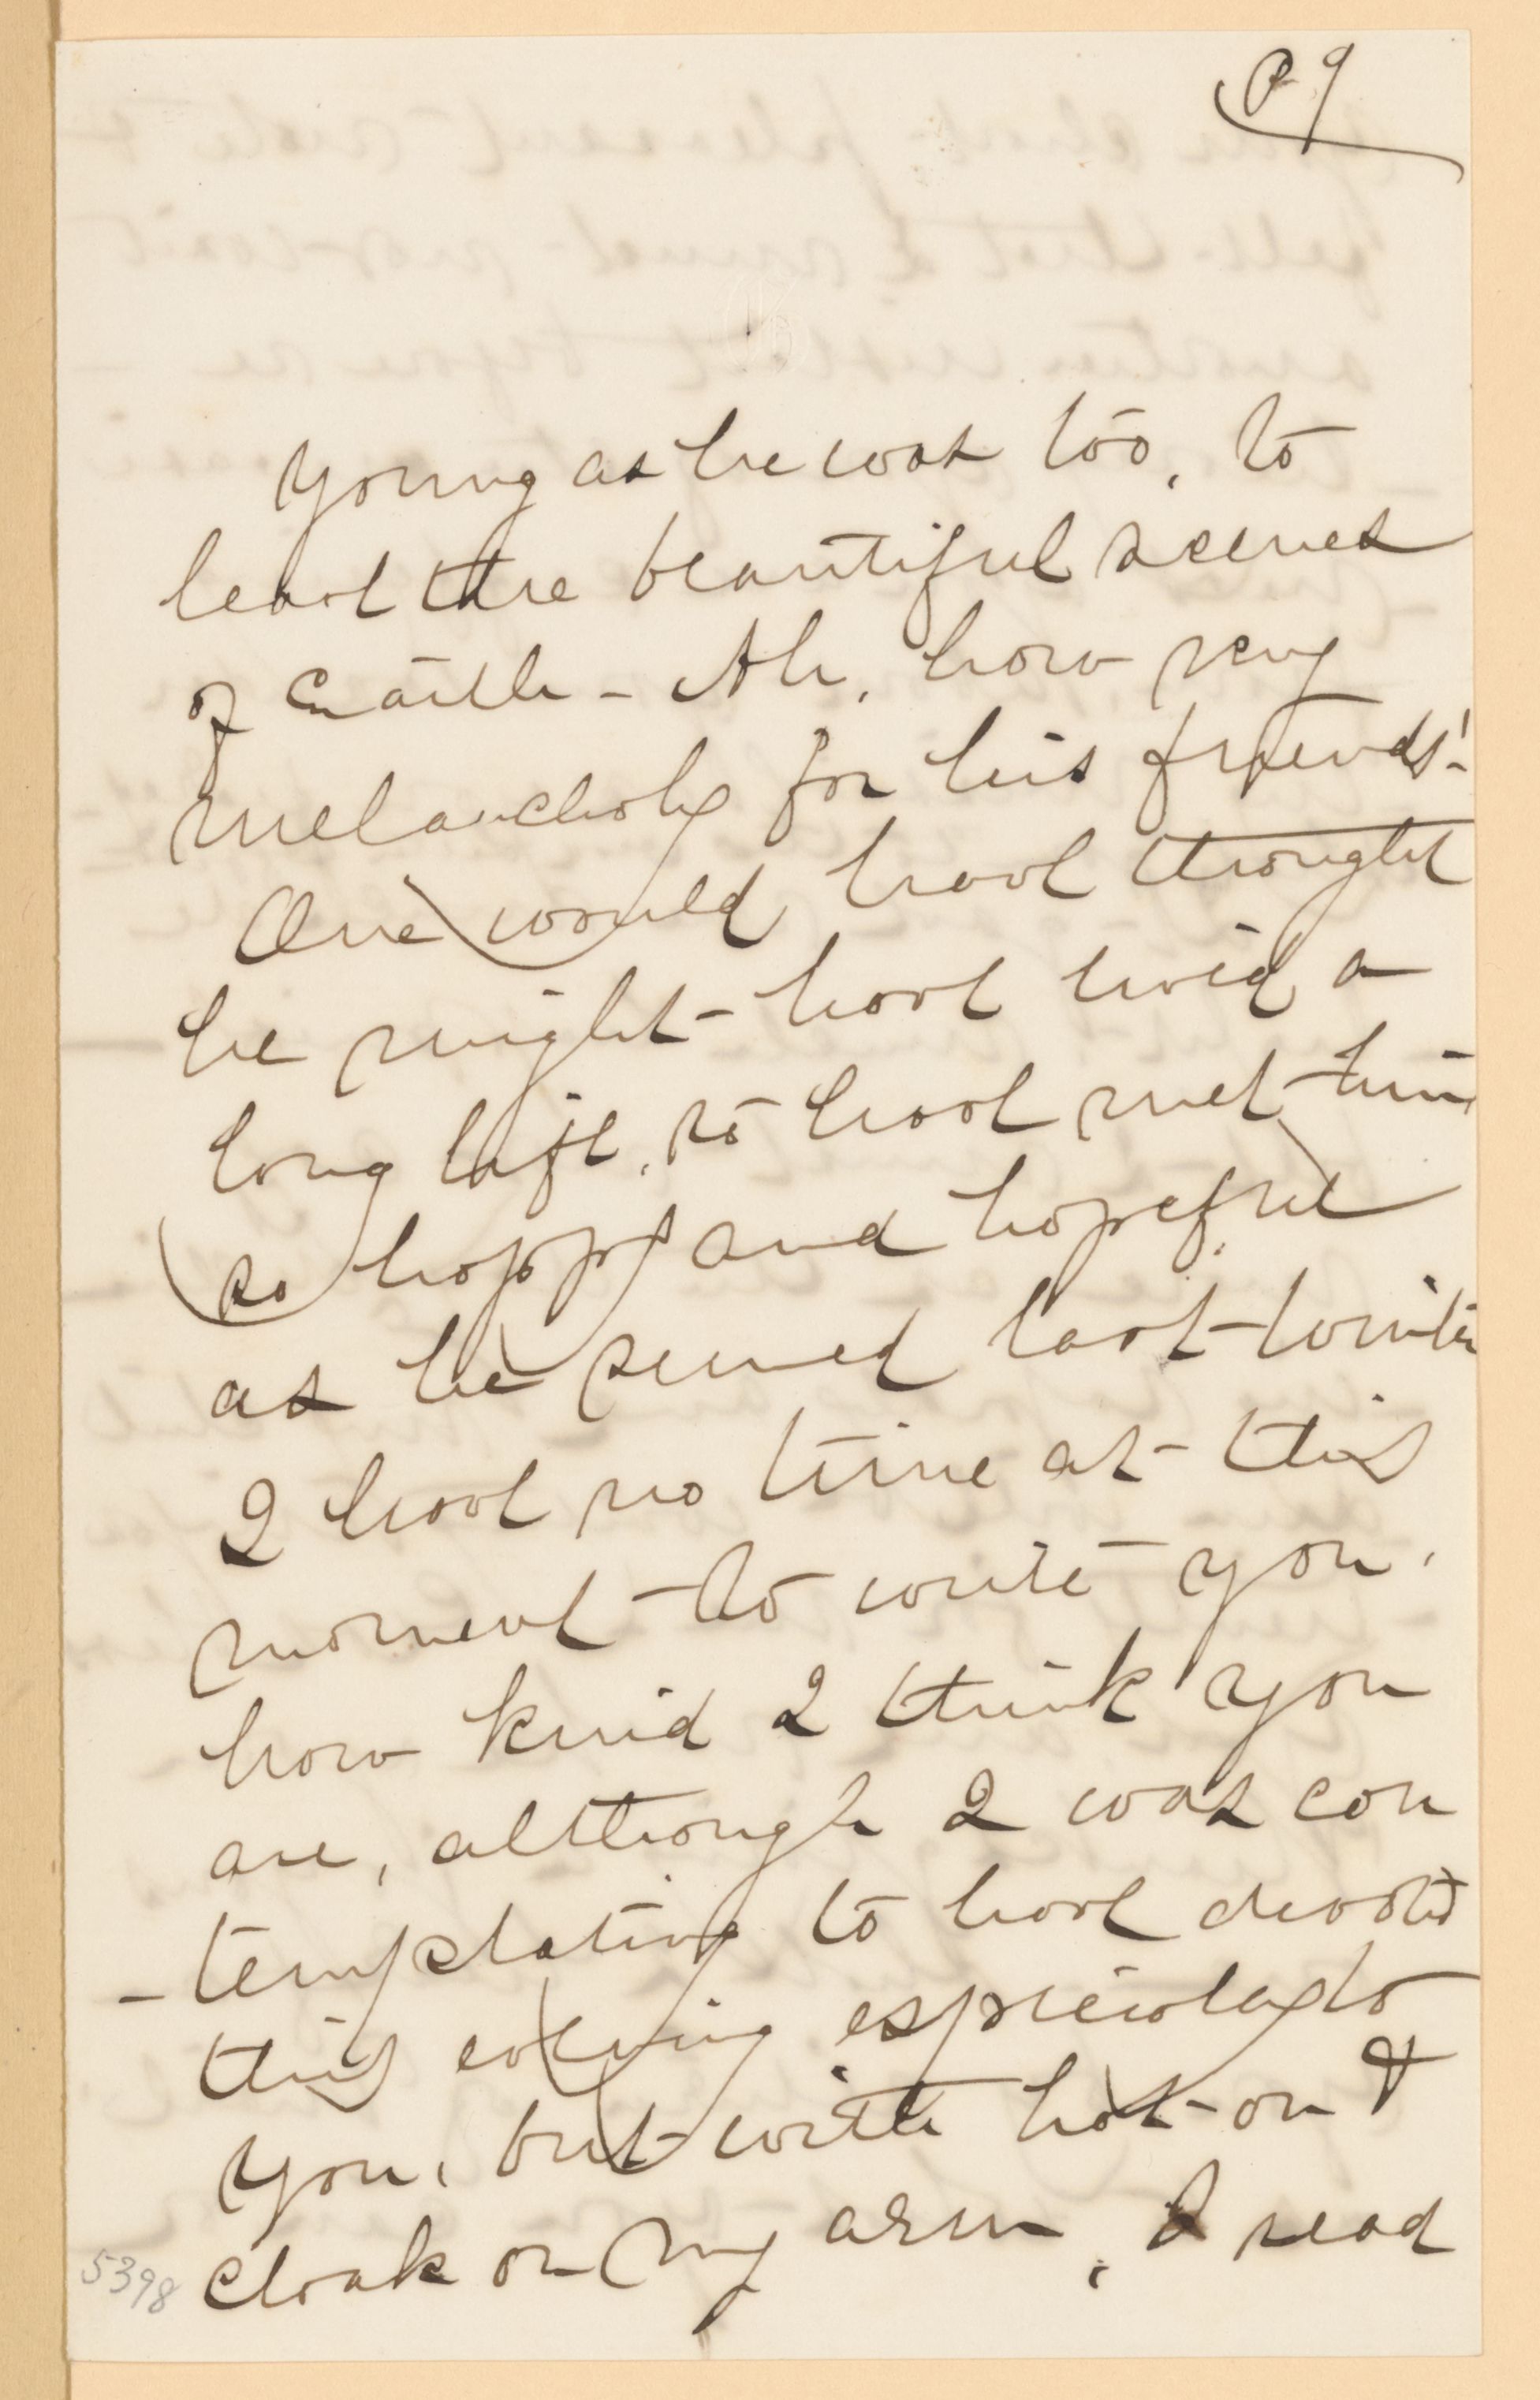 P 9
Young as he was too, to
leave the beautiful scenes
of Earth - Ah, how very
melancholy for his friends!-
One would have thought
he might - have lived a
long life, to have met him
so happy and hopeful
as he seemed last - winter
I have no time at - this
moment - to write you,
how kind I think you
are, although I was con
- templating to have devoted
this evening especially to
you, but - with hat - on &
cloak on my arm, I read
5398